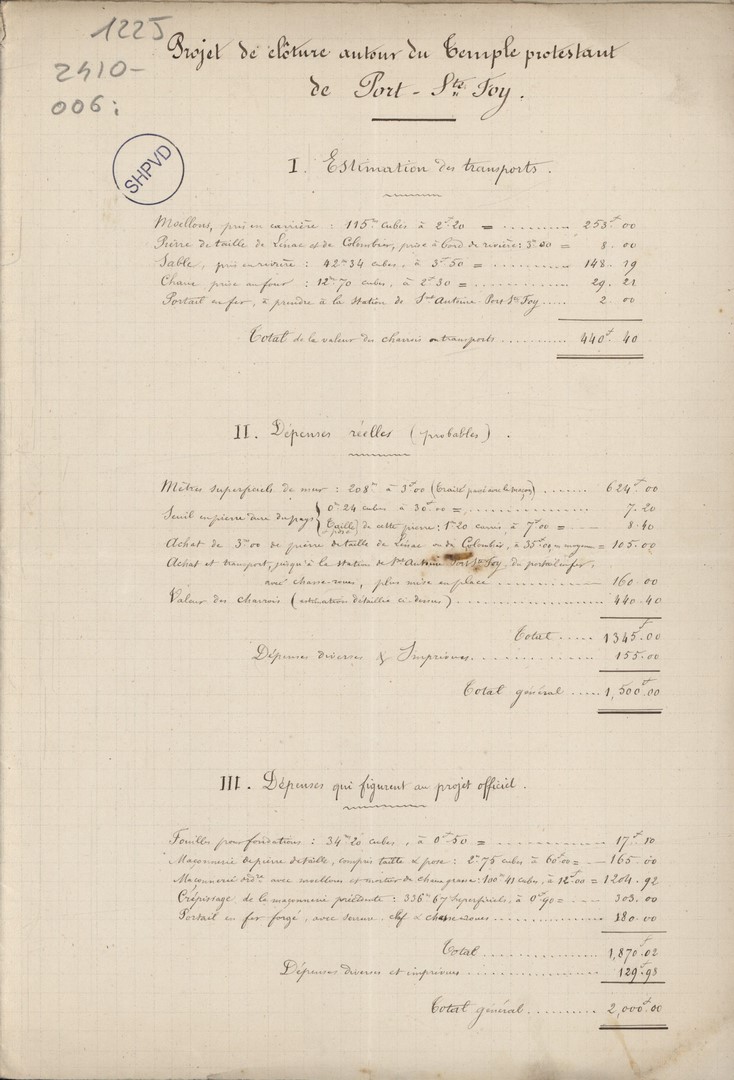 1225
2410-
006:
SHPVD
Projet de clôture autour du Temple protestant
de Port-Ste Foy.
I. Estimation des transports.
Moellons, pris en carrière : 115m cubes à 2f20 = .......... 253f.00
Pierre de taille de Linac et de Colombier, prise à bord de rivière : 3m00 = 8.00
Sable, pris en rivière : 42m34 cubes, à 3f50 = .......... 148.19
Chaux prise au four : 12m70 cubes, à 2f30 = .......... 29.21
Portail en fer, à prendre à la station de St Antoine-Port-Ste Foy ..... 2.00
Total de la valeur des charrois ou transports .......... 440f.40
II. Dépenses réelles (probables).
Mètres superficiels de mur : 208m à 3f00 (traité passé avec le maçon) ....... 624f.00
Seuil en pierre dure du pays { 0m24 cubes à 30f00 =, .......... 7.20
Taille et pose de cette pierre : 1m20 carrés, à 7f00 = ..... 8.40
Achat de 3m00 de pierre de taille de Linac ou de Colombier, à 35f00, en moyenne = 105.00
Achat et transport, jusqu'à la station de St Antoine Port Ste Foy, du portail en fer,
avec chasse-roues, plus mise en place .......... 160.00
Valeur des charrois (estimation détaillée ci-dessus) .......... 440.40
Total ..... 1345f.00
Dépenses diverses & Imprévues .......... 155.00
Total général ..... 1,500f.00
III. Dépenses qui figurent au projet officiel.
Fouilles pour fondations : 34m20 cubes, à 0f50 = .......... 17f.10
Maçonnerie de pierre de taille, compris taille & pose : 2m75 cubes à 60f00 = ... 165.00
Maçonnerie ordre avec moellons et mortier de chaux grasse : 100m41 cubes, à 12f00 = 1204.92
Crépissage de la maçonnerie précédente : 336m67 superficiels, à 0f90 = ..... 303.00
Portail en fer forgé, avec serrure, clef & chasse-roues .......... 180.00
Total .......... 1,870f.02
Dépenses diverses et imprévues .......... 129.98
Total général .......... 2,000f.00